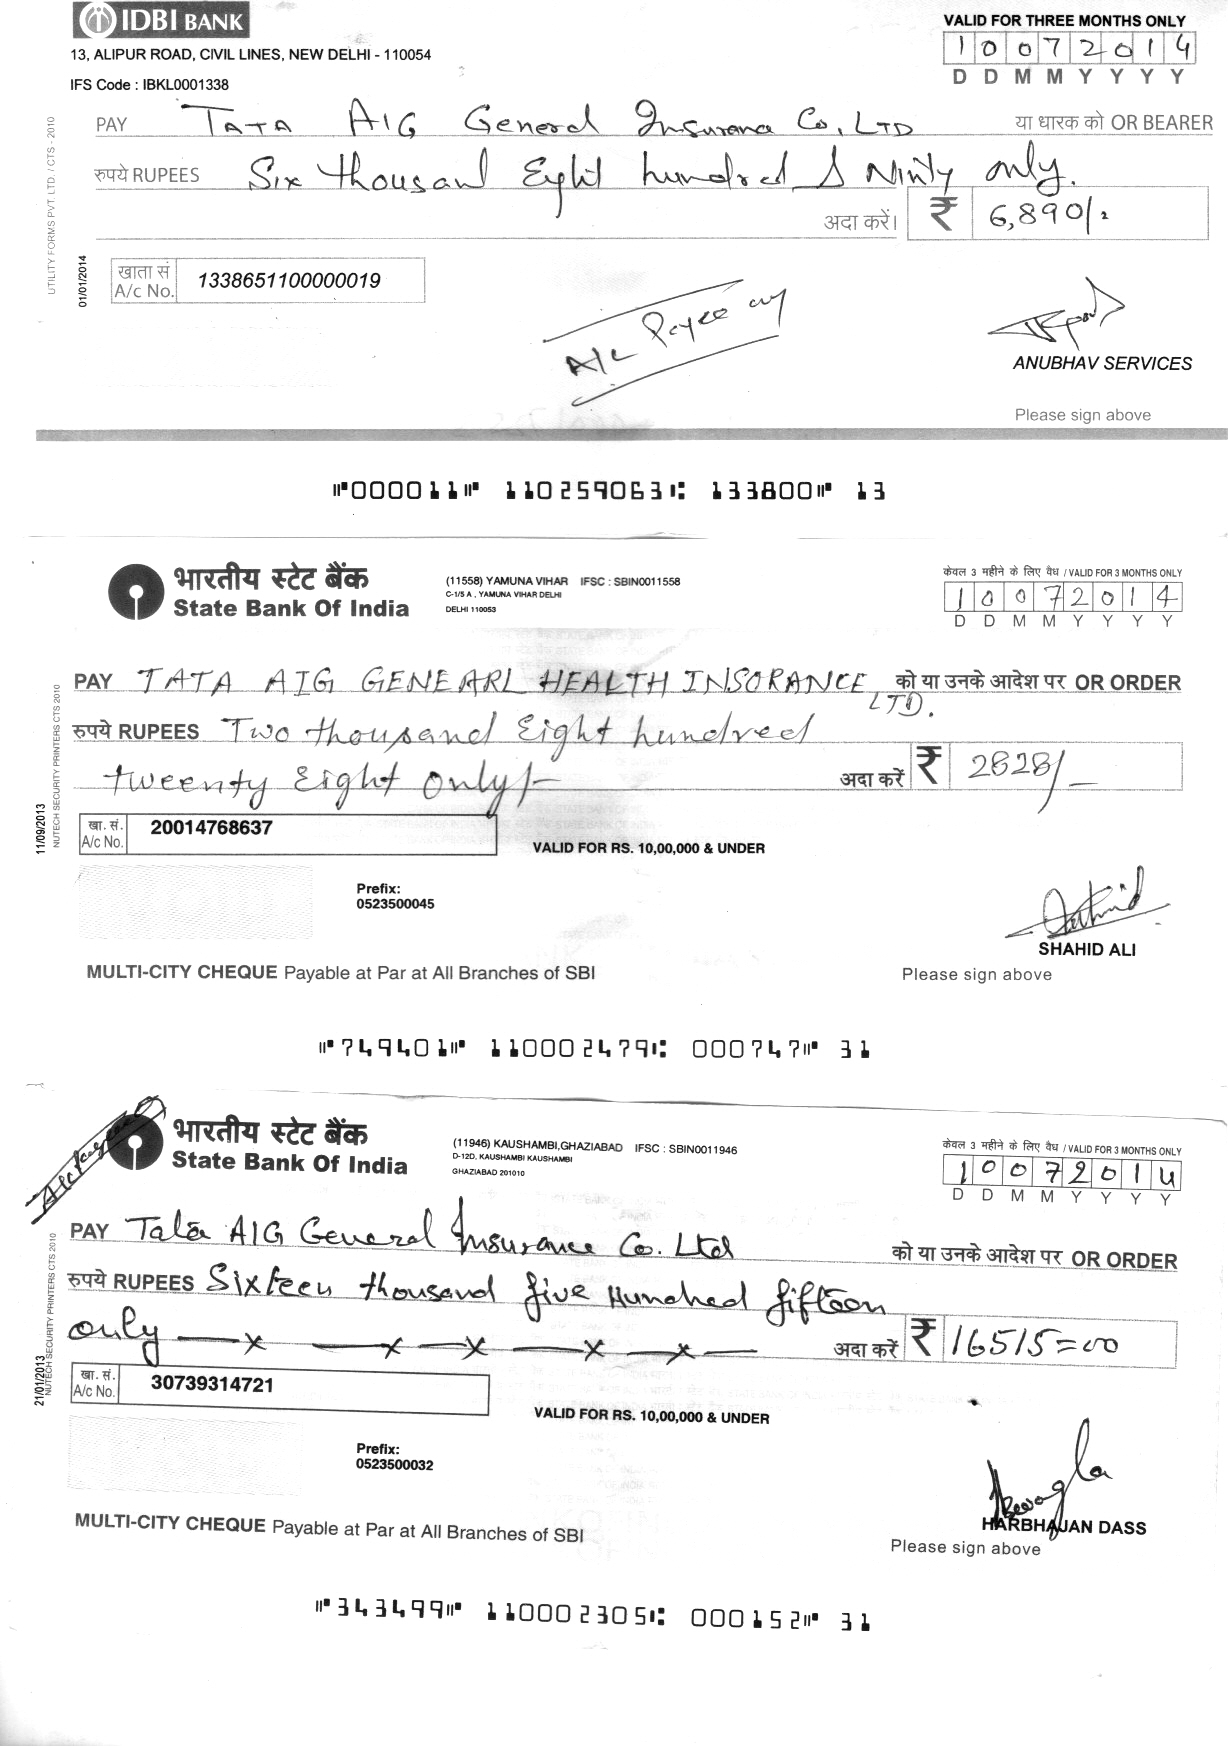 IDBI BANK
13, ALIPUR ROAD, CIVIL LINES, NEW DELHI - 110054
IFS Code : IBKL0001338
VALID FOR THREE MONTHS ONLY
1 0 0 7 2 0 1 4
D D M M Y Y Y Y
PAY TATA AIG General Insurance Co, LTD या धारक को OR BEARER
रुपये RUPEES Six thousand Eight hundred & Ninty only.
अदा करें। ₹ 6,890/-
UTILITY FORMS PVT. LTD. / CTS - 2010
01/01/2014
खाता सं
A/c No. 1338651100000019
A/c Payee
ANUBHAV SERVICES
Please sign above
⑈000011⑈ 110259063⑆ 133800⑈ 13
भारतीय स्टेट बैंक
State Bank Of India
(11558) YAMUNA VIHAR IFSC : SBIN0011558
C-1/5 A , YAMUNA VIHAR DELHI
DELHI 110053
केवल 3 महीने के लिए वैध / VALID FOR 3 MONTHS ONLY
1 0 0 7 2 0 1 4
D D M M Y Y Y Y
PAY TATA AIG GENEARL HEALTH INSORANCE LTD. को या उनके आदेश पर OR ORDER
रुपये RUPEES Two thousand Eight hundred
tweenty Eight only/-
अदा करें ₹ 2828/-
11/09/2013
NUTECH SECURITY PRINTERS CTS 2010
खा. सं.
A/c No. 20014768637
VALID FOR RS. 10,00,000 & UNDER
Prefix:
0523500045
SHAHID ALI
MULTI-CITY CHEQUE Payable at Par at All Branches of SBI
Please sign above
⑈749401⑈ 110002479⑆ 000747⑈ 31
भारतीय स्टेट बैंक
State Bank Of India
(11946) KAUSHAMBI,GHAZIABAD IFSC : SBIN0011946
D-12D, KAUSHAMBI KAUSHAMBI
GHAZIABAD 201010
केवल 3 महीने के लिए वैध / VALID FOR 3 MONTHS ONLY
1 0 0 7 2 0 1 4
D D M M Y Y Y Y
PAY Tata AIG General Insurance Co. Ltd
को या उनके आदेश पर OR ORDER
रुपये RUPEES Sixteen thousand five Hundred fifteen
only — x — x — x — x — x —
अदा करें ₹ 16515=00
21/01/2013
NUTECH SECURITY PRINTERS CTS 2010
खा. सं.
A/c No. 30739314721
VALID FOR RS. 10,00,000 & UNDER
Prefix:
0523500032
HARBHAJAN DASS
MULTI-CITY CHEQUE Payable at Par at All Branches of SBI
Please sign above
⑈343499⑈ 110002305⑆ 000152⑈ 31